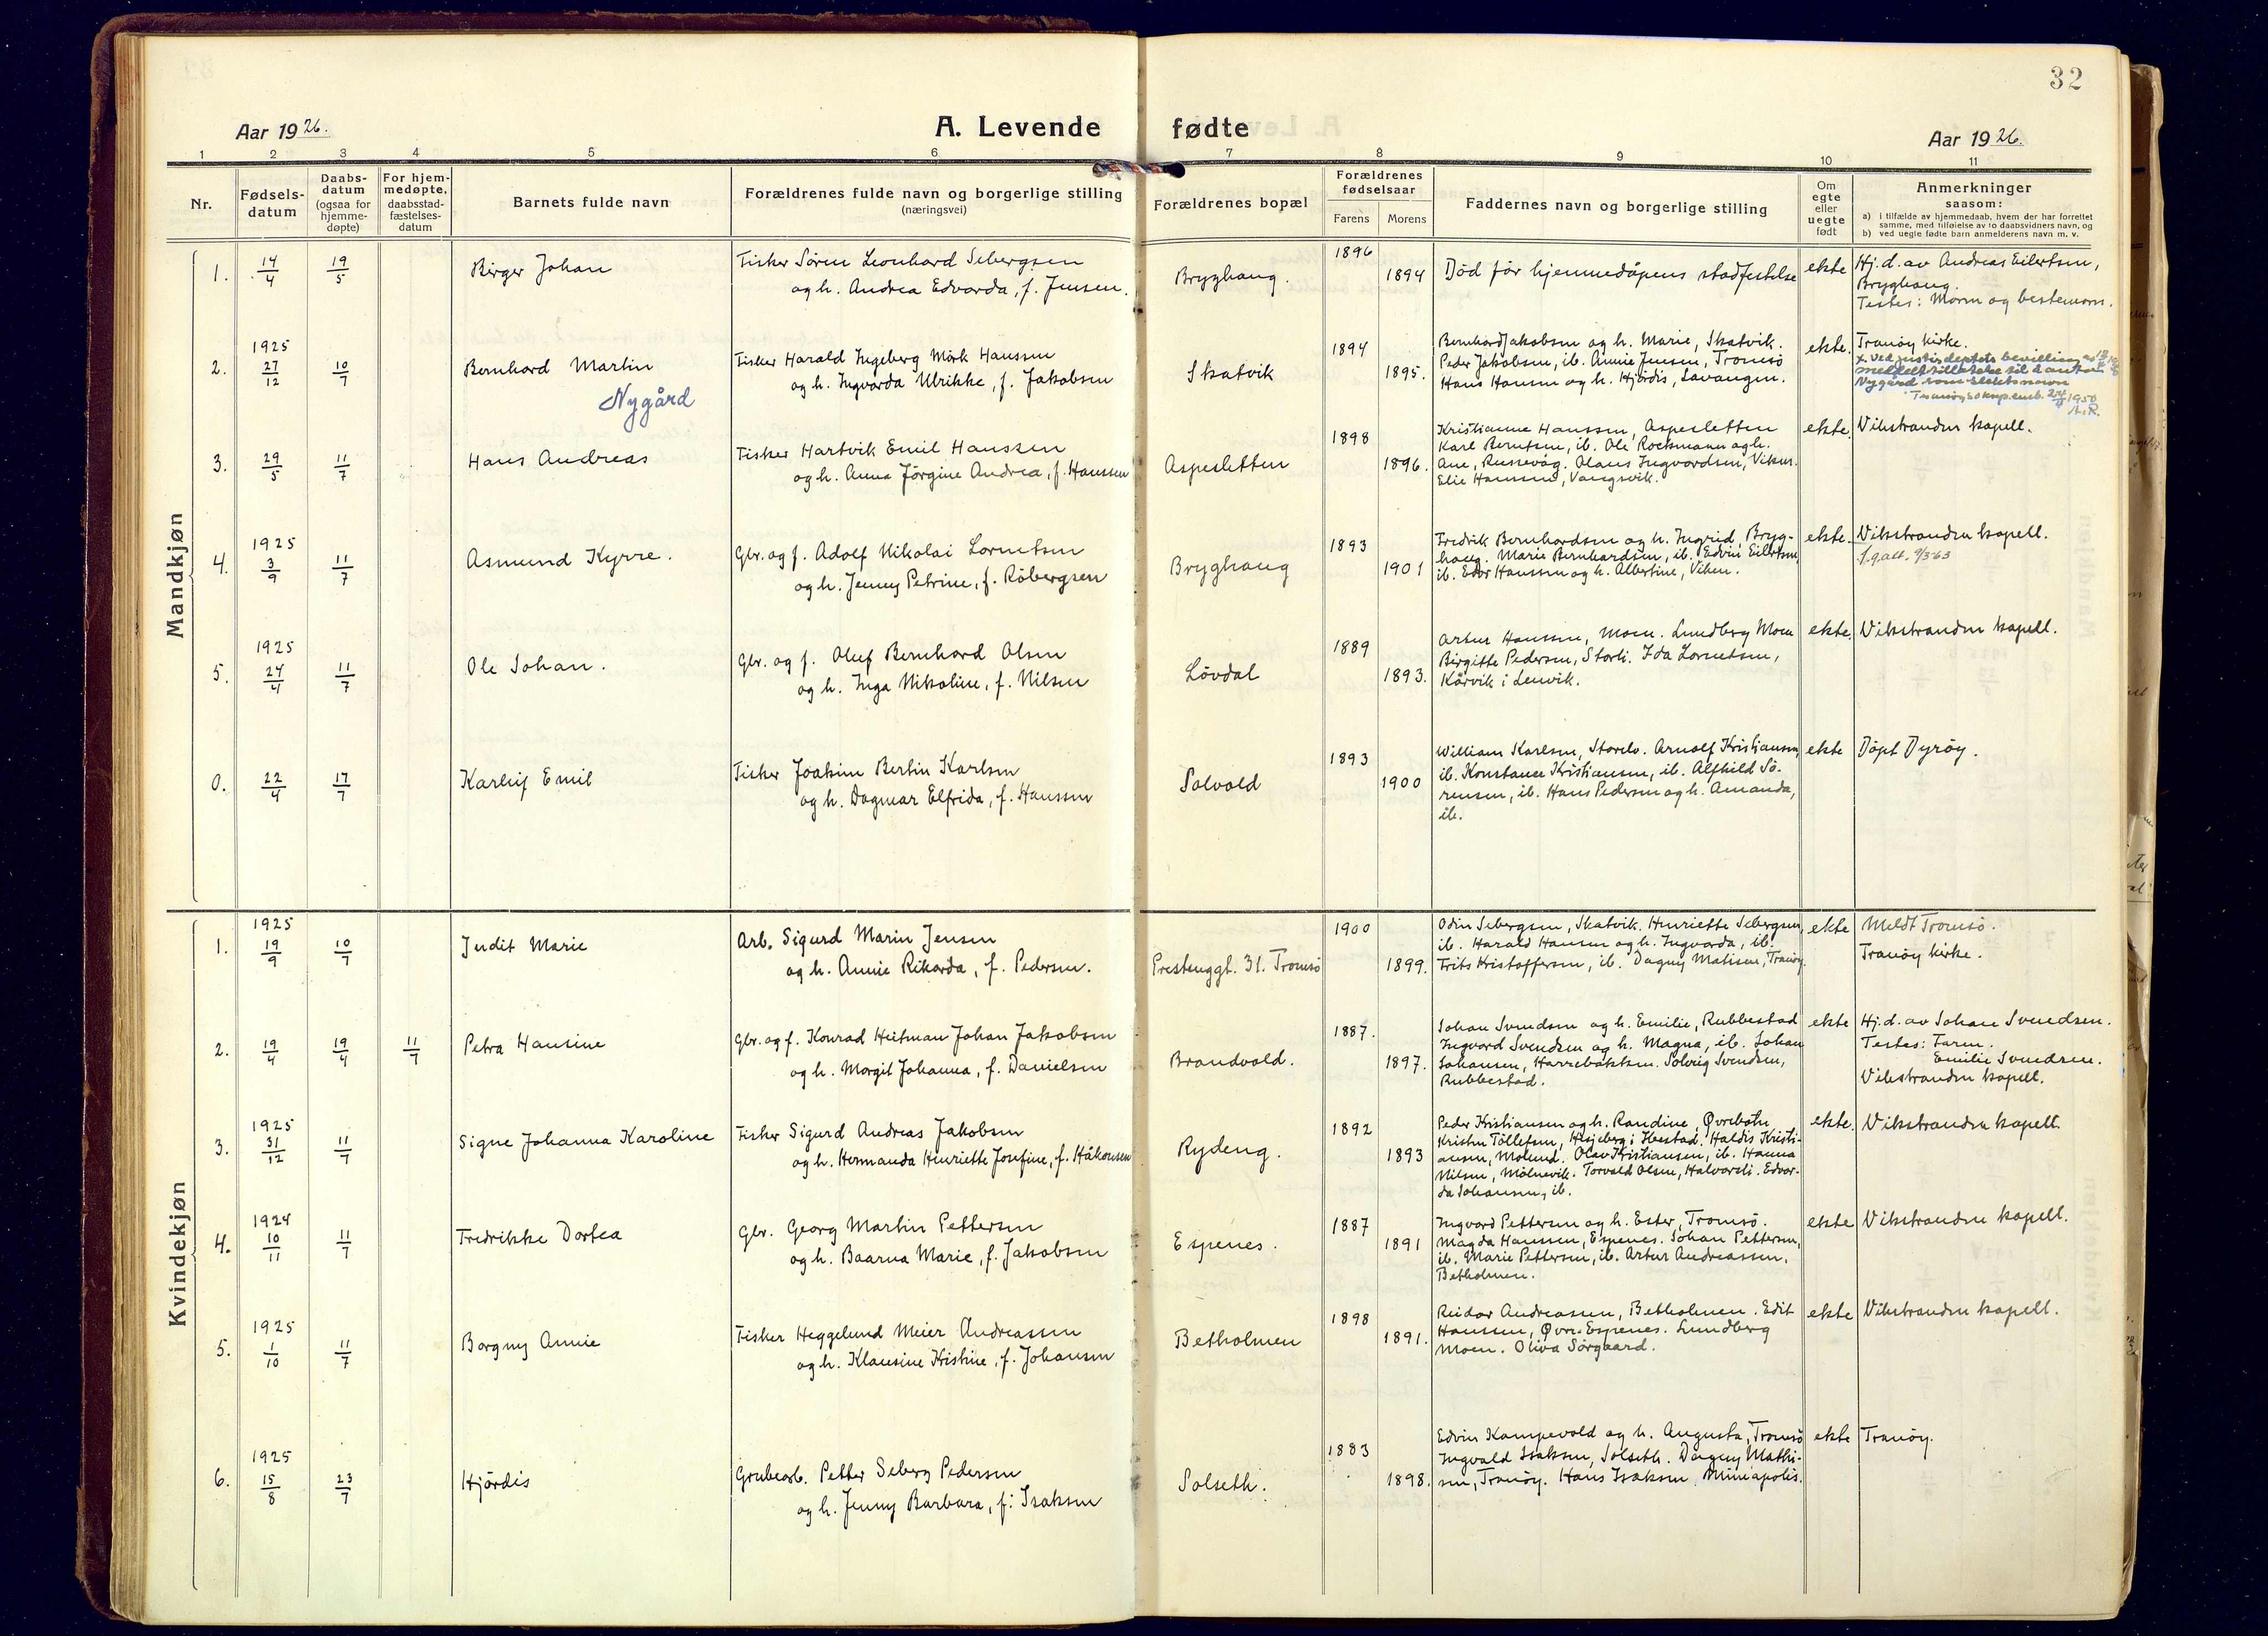 32
Aar 1926.
A. Levende fødte
Aar 1926.
1 2 3 4 5 6 7 8 9 10 11
Nr.
Fødsels-
datum
Daabs-
datum
(ogsaa for
hjemme-
døpte)
For hjem-
medøpte,
daabsstad-
fæstelses-
datum
Barnets fulde navn
Forældrenes fulde navn og borgerlige stilling
(næringsvei)
Forældrenes bopæl
Forældrenes
fødselsaar
Farens Morens
Faddernes navn og borgerlige stilling
Om
egte
eller
uegte
født
Anmerkninger
saasom:
a) i tilfælde av hjemmedaab, hvem der har forrettet
samme, med tilføielse av to daabsvidners navn, og
b) ved uegte fødte barn anmelderens navn m. v.
Mandkjøn
1. 14/4 19/5 Birger Johan
Fisker Sören Leonhard Sebergsen
og h. Andrea Edvarda, f. Jensen.
Brygghaug.
1896
1894
Död før hjemmedåpens stadfestelse
ekte
Hj.d. av Andreas Eilertsen,
Brygghaug.
Testes: Moren og bestemoren.
2. 1925 27/12 10/7 Bernhard Martin
Nygård
Fisker Harald Ingeberg Mörk Hanssen
og h. Ingvarda Ulrikke, f. Jakobsen
Skatvik
1894
1895.
Bernhard Jakobsen og h. Marie, Skatvik.
Peder Jakobsen, ib. Annie Jensen, Tromsö
Hans Hansen og h. Hjördis, Lavangen.
ekte.
Tranöy kirke.
x. Ved justisdeptets bevilling av
meddelt tillatelse til å anta
Nygård som slektsnavn
1950
A.R.
3. 29/5 11/7 Hans Andreas
Fisker Hartvik Emil Hanssen
og h. Anna Jörgine Andrea, f. Hanssen
Aspesletten
1898
1896.
Kristianne Hanssen, Aspesletten
Karl Berntsen, ib. Ole Rockmann og h.
Ane, Russevåg. Olaus Ingvardsen, Viken.
Elie Hanssen, Vangsvik.
ekte.
Vikstranden kapell.
4. 1925 3/9 11/7 Asmund Kyrre.
Gbr. og f. Adolf Nikolai Lorentsen
og h. Jenny Petrine, f. Röbergsen
Brygghaug
1893
1901
Fredrik Bernhardsen og h. Ingrid, Brygg-
haug. Marie Bernhardsen, ib. Edvin Eilertsen,
ib. Edor Hanssen og h. Albertine, Viken.
ekte.
Vikstranden kapell.
f.g.att. 9/3 63
5. 1925 24/4 11/7 Ole Johan.
Gbr. og f. Oluf Bernhard Olsen
og h. Inga Nikoline, f. Nilsen
Lövdal
1889
1893.
Artur Hanssen, Moen. Lundberg Moen
Birgitte Pedersen, Storli. Ida Lorentsen,
Kårvik i Lenvik.
ekte.
Vikstranden kapell.
0. 22/4 17/7 Karleif Emil
Fisker Joakim Bertin Karlsen
og h. Dagmar Elfrida, f. Hanssen
Solvold
1893
1900
William Karlsen, Storelv. Arnolf Kristiansen,
ib. Konstanse Kristiansen, ib. Alfhild Sö-
rensen, ib. Hans Pedersen og h. Amanda,
ib.
ekte
Döpt Dyröy.
Kvindekjøn
1. 1925 19/9 10/7 Judit Marie
Arb. Sigurd Marin Jensen
og h. Annie Rikarda, f. Pedersen.
Prestenggt. 31. Tromsö
1900
1899.
Odin Sebergsen, Skatvik. Henriette Sebergsen,
ib. Harald Hansen og h. Ingvarda, ib.
Frits Kristoffersen, ib. Dagny Matisen, Tranöy.
ekte
Meldt Tromsö.
Tranöy kirke.
2. 19/4 19/4 11/7 Petra Hansine
Gbr. og f. Konrad Heitman Johan Jakobsen
og h. Margit Johanna, f. Danielsen
Brandvold.
1887.
1897.
Johan Svendsen og h. Emilie, Rubbestad
Ingvard Svendsen og h. Magna, ib. Johan
Johansen, Harrebakken. Solveig Svendsen,
Rubbestad.
ekte
Hj.d. av Johan Svendsen.
Testes: Faren.
Emilie Svendsen.
Vikstranden kapell.
3. 1925 31/12 11/7 Signe Johanna Karoline
Fisker Sigurd Andreas Jakobsen
og h. Hermanda Henriette Josefine, f. Håkonsen
Rydeng.
1892
1893
Peder Kristiansen og h. Randine, Øvrebotn
Kristen Töllefsen, Hesjeberg i Ibestad. Haldis Kristi-
ansen, Molund. Olav Kristiansen, ib. Hanna
Nilsen, Mölnevik. Torvald Olsen, Halvorsli. Edvar-
da Johansen, ib.
ekte.
Vikstranden kapell.
4. 1924 10/11 11/7 Fredrikke Dortea
Gbr. Georg Martin Pettersen
og h. Baarna Marie, f. Jakobsen
Espenes.
1887
1891
Ingvard Pettersen og h. Ester, Tromsö.
Magda Hanssen, Espenes. Johan Pettersen,
ib. Marie Pettersen, ib. Artur Andreassen,
Betholmen.
ekte
Vikstranden kapell.
5. 1925 1/10 11/7 Borgny Annie
Fisker Heggelund Meier Andreassen
og h. Klausine Kristine, f. Johansen
Betholmen
1898
1891.
Reidar Andreassen, Betholmen. Edit
Hanssen, Øvre-Espenes. Lundberg
Moen. Oliva Sörgaard.
ekte
Vikstranden kapell.
6. 1925 15/8 23/7 Hjördis
Grubearb. Petter Seberg Pedersen
og h. Jenny Barbara, f. Isaksen
Solseth.
1883
1898.
Edvin Kampevold og h. Augusta, Tromsö
Ingvald Isaksen, Solseth. Dagny Mathi-
sen, Tranöy. Hans Isaksen Miniapolis.
ekte
Tranöy.